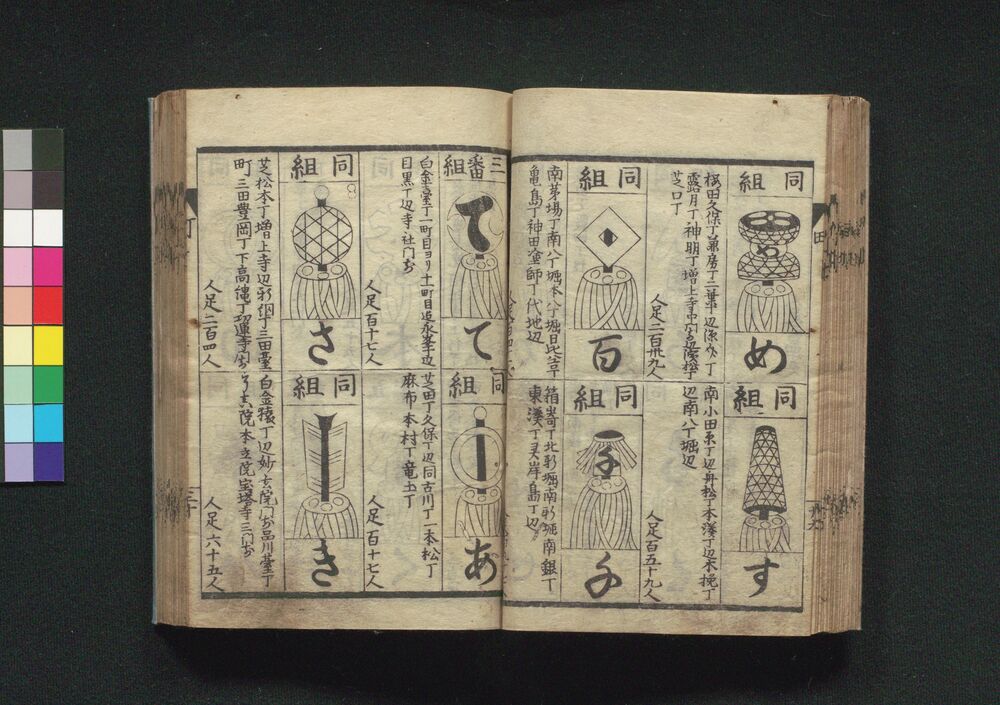 同組
め
桜田久保丁兼房丁二葉丁辺源介丁
露月丁神明丁増上寺中門前辺浜松丁
芝口丁
人足二百卅九人
同組
す
南小田原丁辺舟松丁本湊丁辺木挽丁
辺南八丁堀辺
人足百五十九人
同組
百
南茅場丁南八丁堀本八丁堀日比谷丁
亀島丁神田塗師丁代地辺
同組
千
千
箱崎丁北新堀南新堀南銀丁
東湊丁灵岸島丁辺
三番組
て
て
白金臺丁一町目ヨリ十一町目迄永峯丁辺
目黒丁辺寺社門前
人足百十七人
同組
あ
芝田丁久保丁辺同古川丁一本松丁
麻布本村丁竜土丁
人足百十七人
同組
さ
芝松本丁増上寺辺新網丁三田臺
町三田豊岡丁下高縄丁
人足二百四人
同組
き
白金猿丁辺妙玄院門前品川臺丁
了真院本立院宝塔寺三門前
人足六十五人